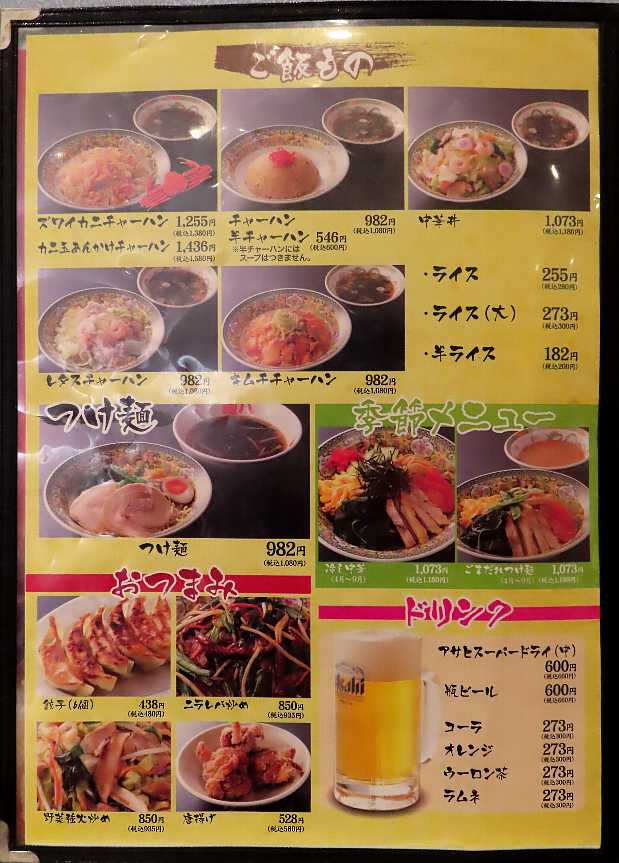 ご飯もの
ズワイカニチャーハン 1,255円
(税込1,380円)
カニ玉あんかけチャーハン 1,436円
(税込1,580円)
チャーハン 982円
(税込1,080円)
半チャーハン 546円
(税込600円)
※半チャーハンには
スープはつきません。
中華丼 1,073円
(税込1,180円)
レタスチャーハン 982円
(税込1,080円)
キムチチャーハン 982円
(税込1,080円)
・ライス 255円
(税込280円)
・ライス(大) 273円
(税込300円)
・半ライス 182円
(税込200円)
つけ麺
つけ麺 982円
(税込1,080円)
季節メニュー
冷し中華 1,073円
(4月〜9月) (税込1,180円)
ごまだれつけ麺 1,073円
(4月〜9月) (税込1,180円)
おつまみ
餃子(6個) 438円
(税込480円)
ニラレバ炒め 850円
(税込935円)
野菜強火炒め 850円
(税込935円)
唐揚げ 528円
(税込580円)
ドリンク
Asahi
アサヒスーパードライ(中)
600円
(税込660円)
瓶ビール 600円
(税込660円)
コーラ 273円
(税込300円)
オレンジ 273円
(税込300円)
ウーロン茶 273円
(税込300円)
ラムネ 273円
(税込300円)